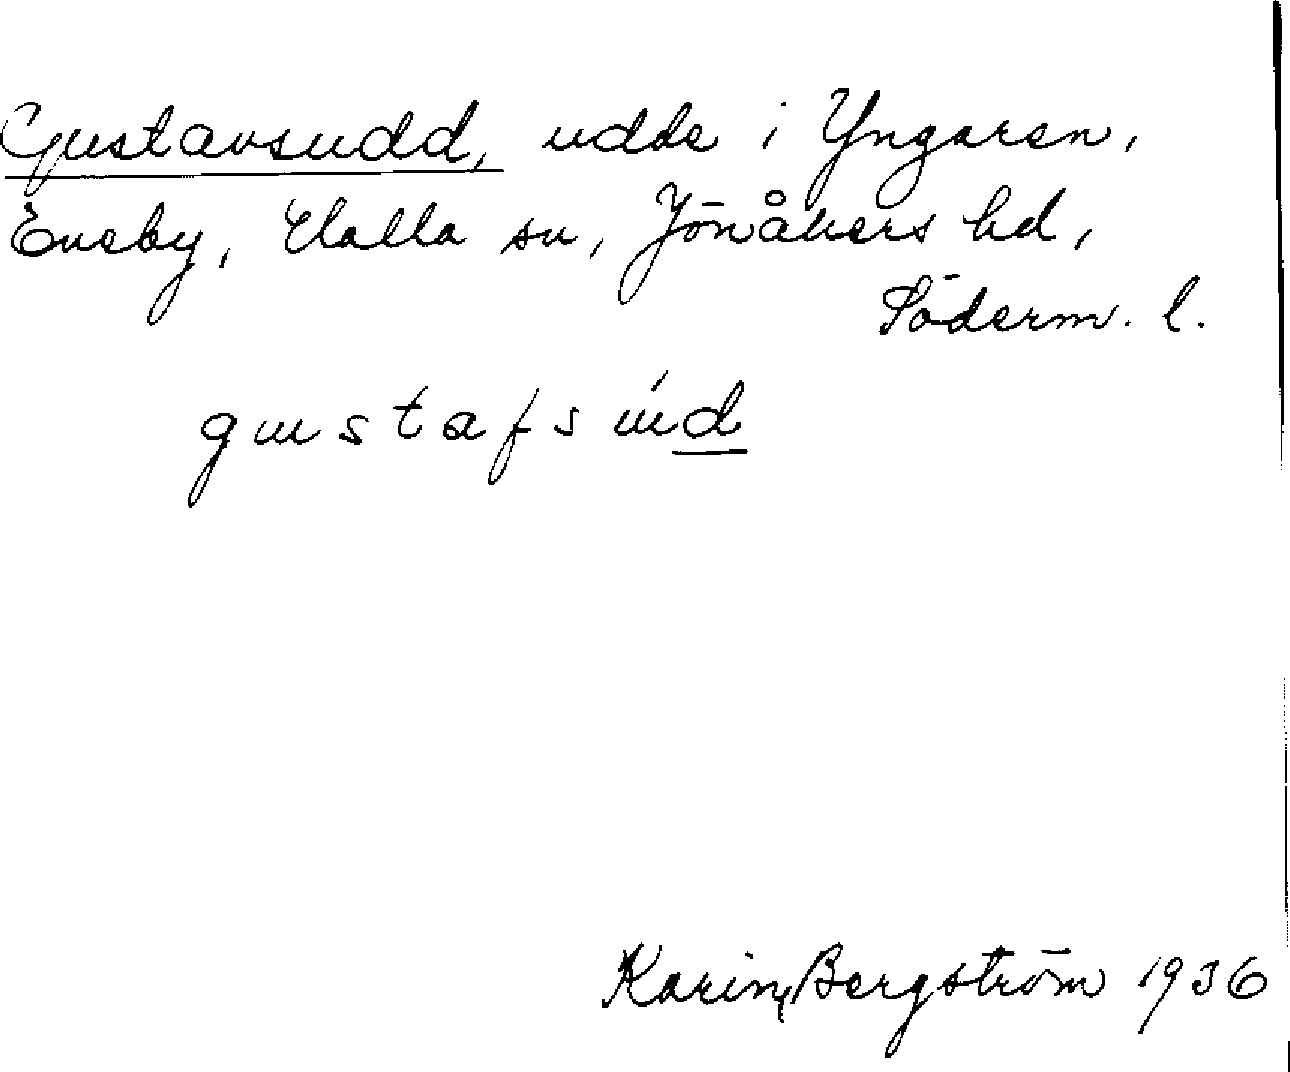 Gustavsudd, udde i Yngaren,
Eneby, Halla sn, Jönåkers hd,
Söderm. l.
gustafsúd
Karin Bergström 1936